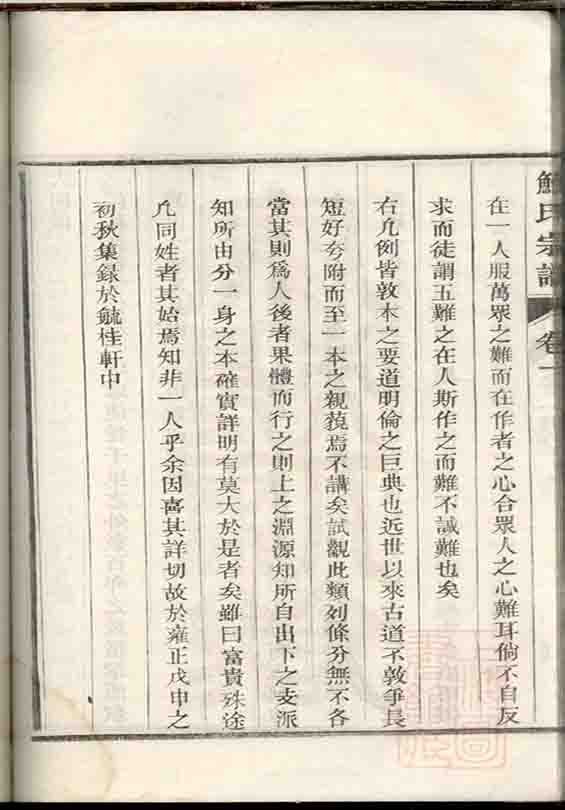 氏宗譜 卷一
在一人服萬眾之難而在作者之心合眾人之心難耳倘不自反
求而徒謂五難之在人斯作之而難不誠難也矣
右凡例皆敦本之要道明倫之巨典也近世以來古道不敦爭長
短好夸附而至一本之親藐焉不講矣試觀此類列條分無不各
當其則為人後者果體而行之則上之淵源知所自出下之支派
知所由分一身之本確實詳明有莫大於是者矣雖曰富貴殊途
凡同姓者其始焉知非一人乎余因喜其詳切故於雍正戊申之
初秋集録於毓桂軒中